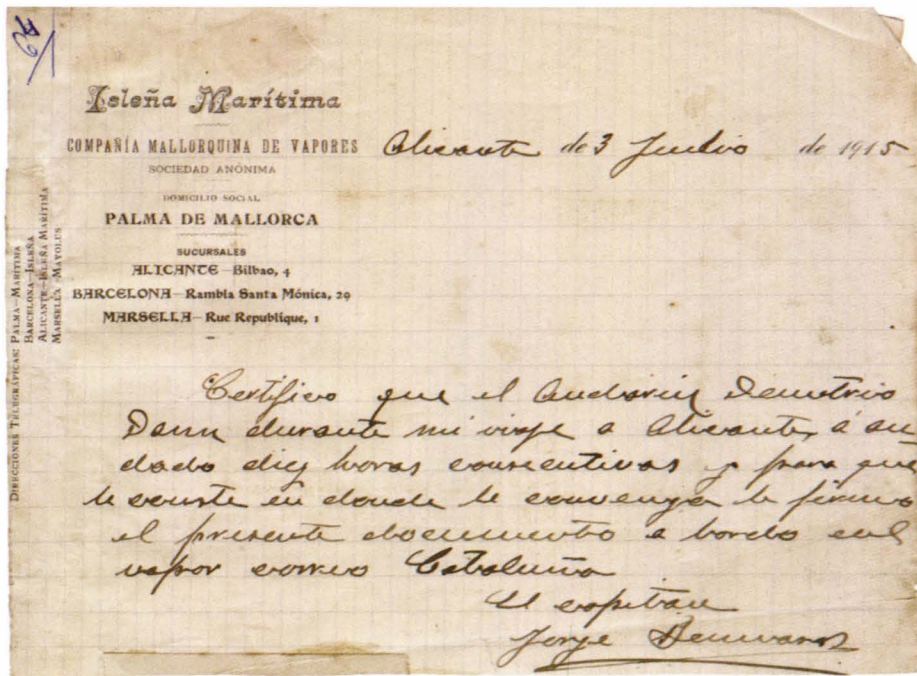 64/1
Isleña Marítima
COMPAÑÍA MALLORQUINA DE VAPORES
SOCIEDAD ANÓNIMA
DOMICILIO SOCIAL
PALMA DE MALLORCA
SUCURSALES
ALICANTE—Bilbao, 4
BARCELONA—Rambla Santa Mónica, 29
MARSELLA—Rue Republique, 1
DIRECCIONES TELEGRÁFICAS: PALMA—MARÍTIMA
BARCELONA—ISLEÑA
ALICANTE—ISLEÑA MARÍTIMA
MARSELLA—MAYOLUS
Alicante de 3 Junio de 1915
Certifico que el Andarin Demetrio
Dann durante mi viaje a Alicante, á an
dado diez horas consecutivas y para que
le conste en donde le convenga le firmo
el presente documento a bordo del
vapor correo Cataluña
El capitan
Jorge